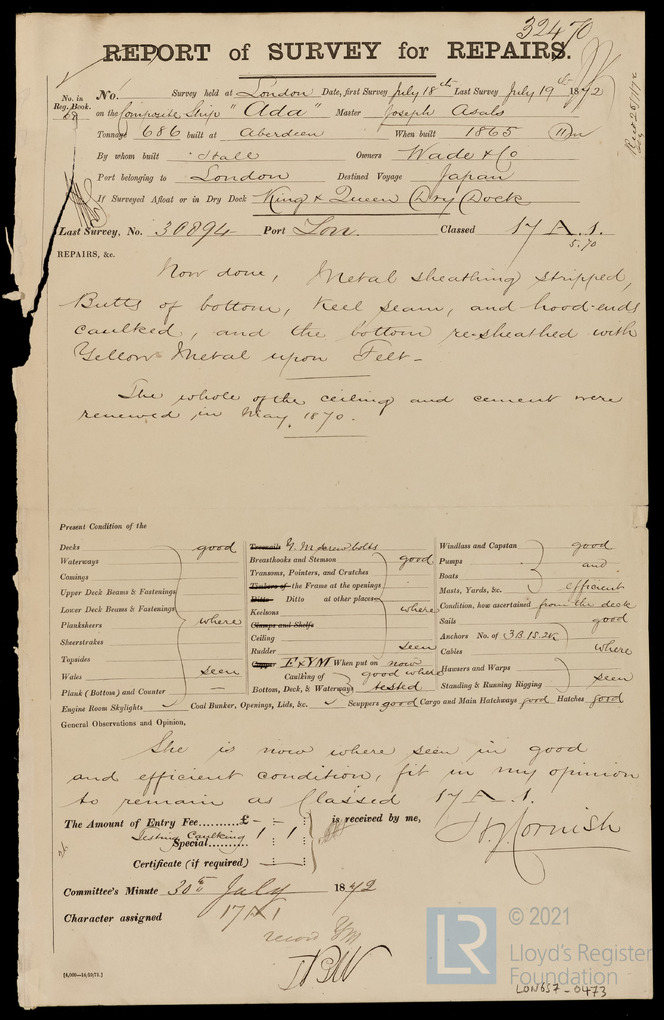 32470
REPORT of SURVEY for REPAIRS.
No. in Reg. Book.
No. Survey held at London Date, first Survey July 18th Last Survey July 19th 1872
on the Composite Ship "Ada" Master Joseph Asals
Tonnage 686 built at Aberdeen When built 1865
By whom built Hall Owners Wade & Co
Port belonging to London Destined Voyage Japan
If Surveyed Afloat or in Dry Dock King & Queen Dry Dock
Last Survey, No. 30894 Port Lon. Classed 17 A.1.
5.70
REPAIRS, &c.
Now done, Metal sheathing stripped,
Butts of bottom, keel seam, and hood-ends
caulked, and the bottom re-sheathed with
Yellow Metal upon Felt-
The whole of the ceiling and cement were
renewed in May, 1870.
Present Condition of the
Decks good
Waterways
Comings
Upper Deck Beams & Fastenings
Lower Deck Beams & Fastenings
Planksheers where
Sheerstrakes
Topsides
Wales seen
Plank (Bottom) and Counter –
Treenails Y.M screw bolts
Breasthooks and Stemson good
Transoms, Pointers, and Crutches
Timbers of the Frame at the openings
Ditto Ditto at other places
Keelsons where
Clamps and Shelfs
Ceiling
Rudder seen
Copper F & YM When put on now
Caulking of good where
Bottom, Deck, & Waterways tested
Windlass and Capstan good
Pumps and
Boats
Masts, Yards, &c. efficient
Condition, how ascertained from the deck
Sails good
Anchors No. of 3B.1S.2K
Cables where
Hawsers and Warps
Standing & Running Rigging seen
Engine Room Skylights ✓ Coal Bunker, Openings, Lids, &c. ✓ Scuppers good Cargo and Main Hatchways good Hatches good
General Observations and Opinion,
She is now where seen in good
and efficient condition, fit in my opinion
to remain as Classed 17 A.1.
The Amount of Entry Fee.........£ - : - : is received by me,
Testing Caulking 1 : 1 :
Special.........
Certificate (if required)
H. J. Cornish
Committee's Minute 30th July 1872
Character assigned 17 A 1
record YM
[4,000—10/10/71.]
LR
© 2021
Lloyd's Register
Foundation
LON657-0473